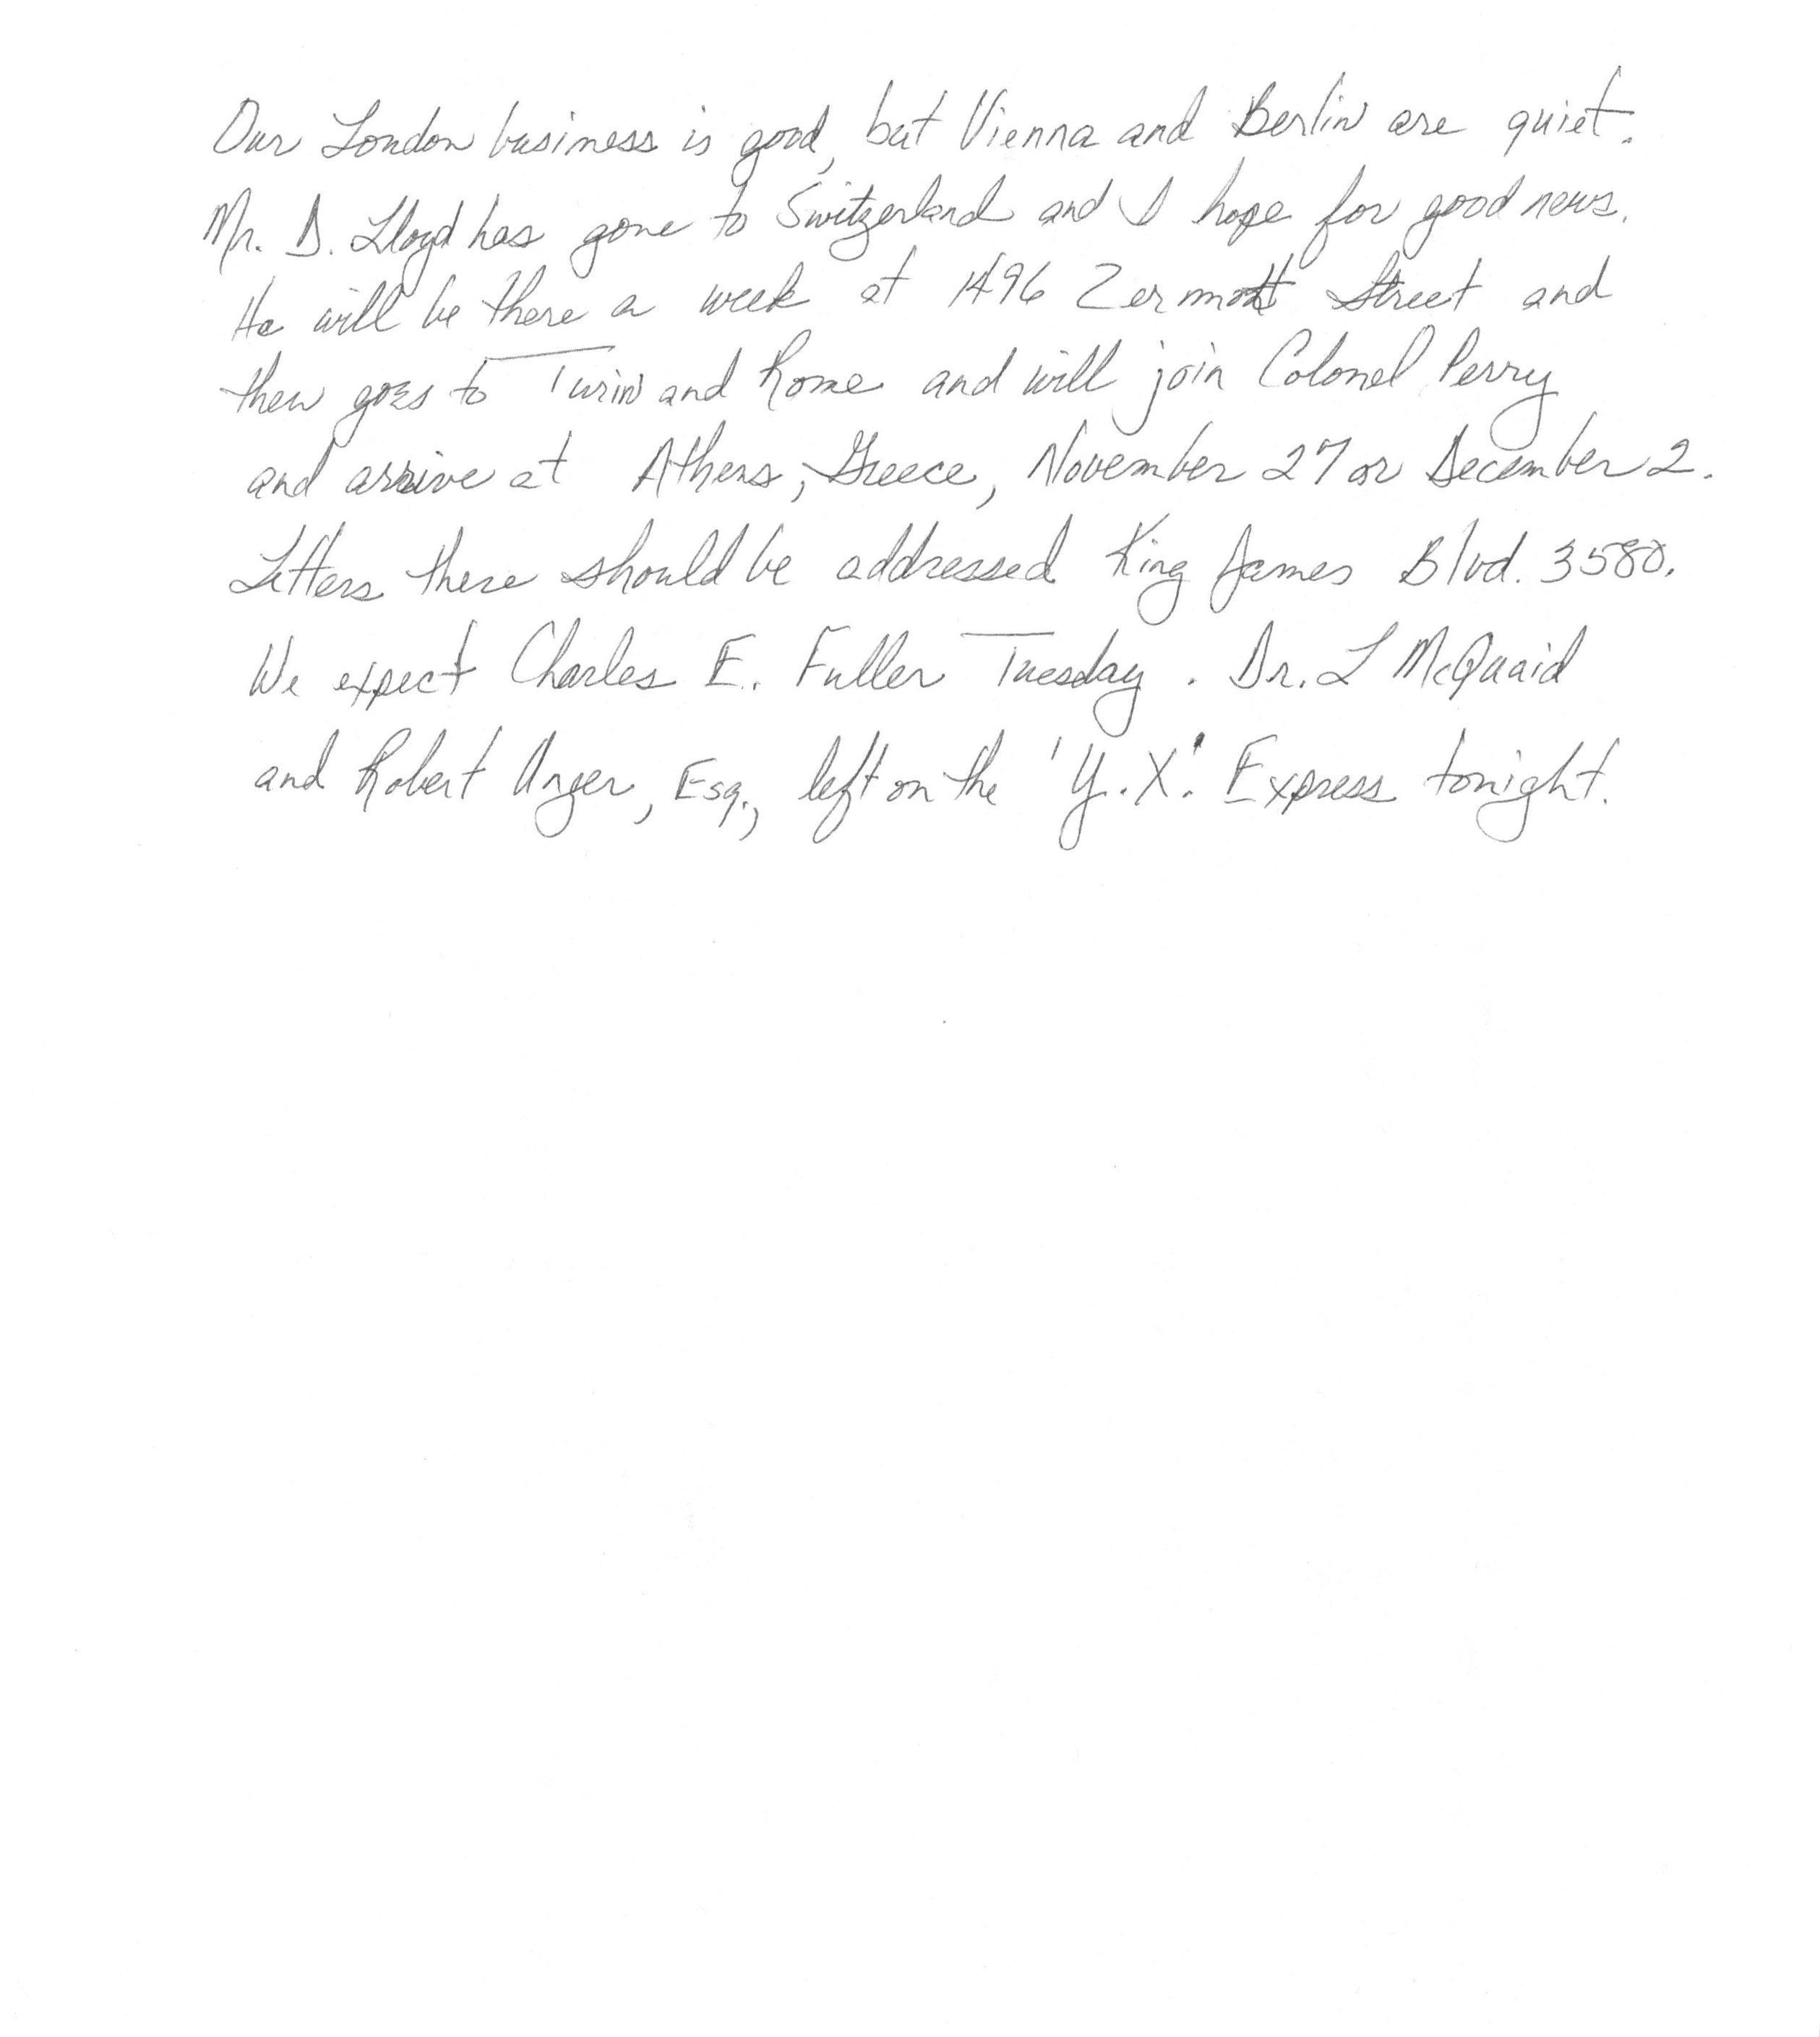 Our London business is good, but Vienna and Berlin are quiet.
Mr. D. Lloyd has gone to Switzerland and I hope for good news.
He will be there a week at 1496 Zermott Street and
then goes to Turin and Rome and will join Colonel Perry
and arrive at Athens, Greece, November 27 or December 2.
Letters there should be addressed King James Blvd. 3580.
We expect Charles E. Fuller Tuesday. Dr. L McQuaid
and Robert Unger, Esq., left on the 'Y.X.' Express tonight.